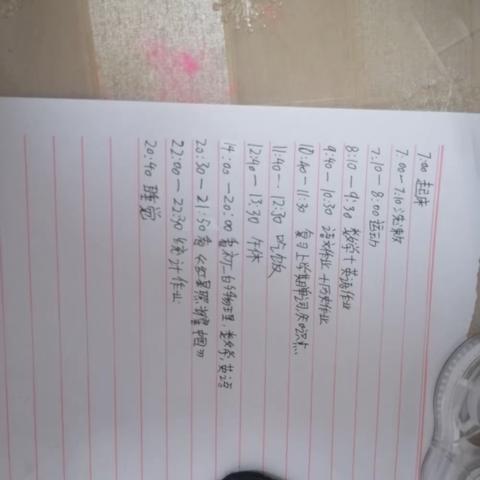 7:00 起床
7:00—7:10 洗漱
7:10—8:00 运动
8:10—9:30 数学+英语作业
9:40—10:30 语文作业+历史作业
10:40—11:30 复习上学期单词,知识点
11:40—12:30 吃饭
12:40—13:30 午休
14:00—20:00 看初二的物理,数学,英语
20:30—21:50 看《红星照耀中国》
22:00—22:30 统计作业
20:40 睡觉